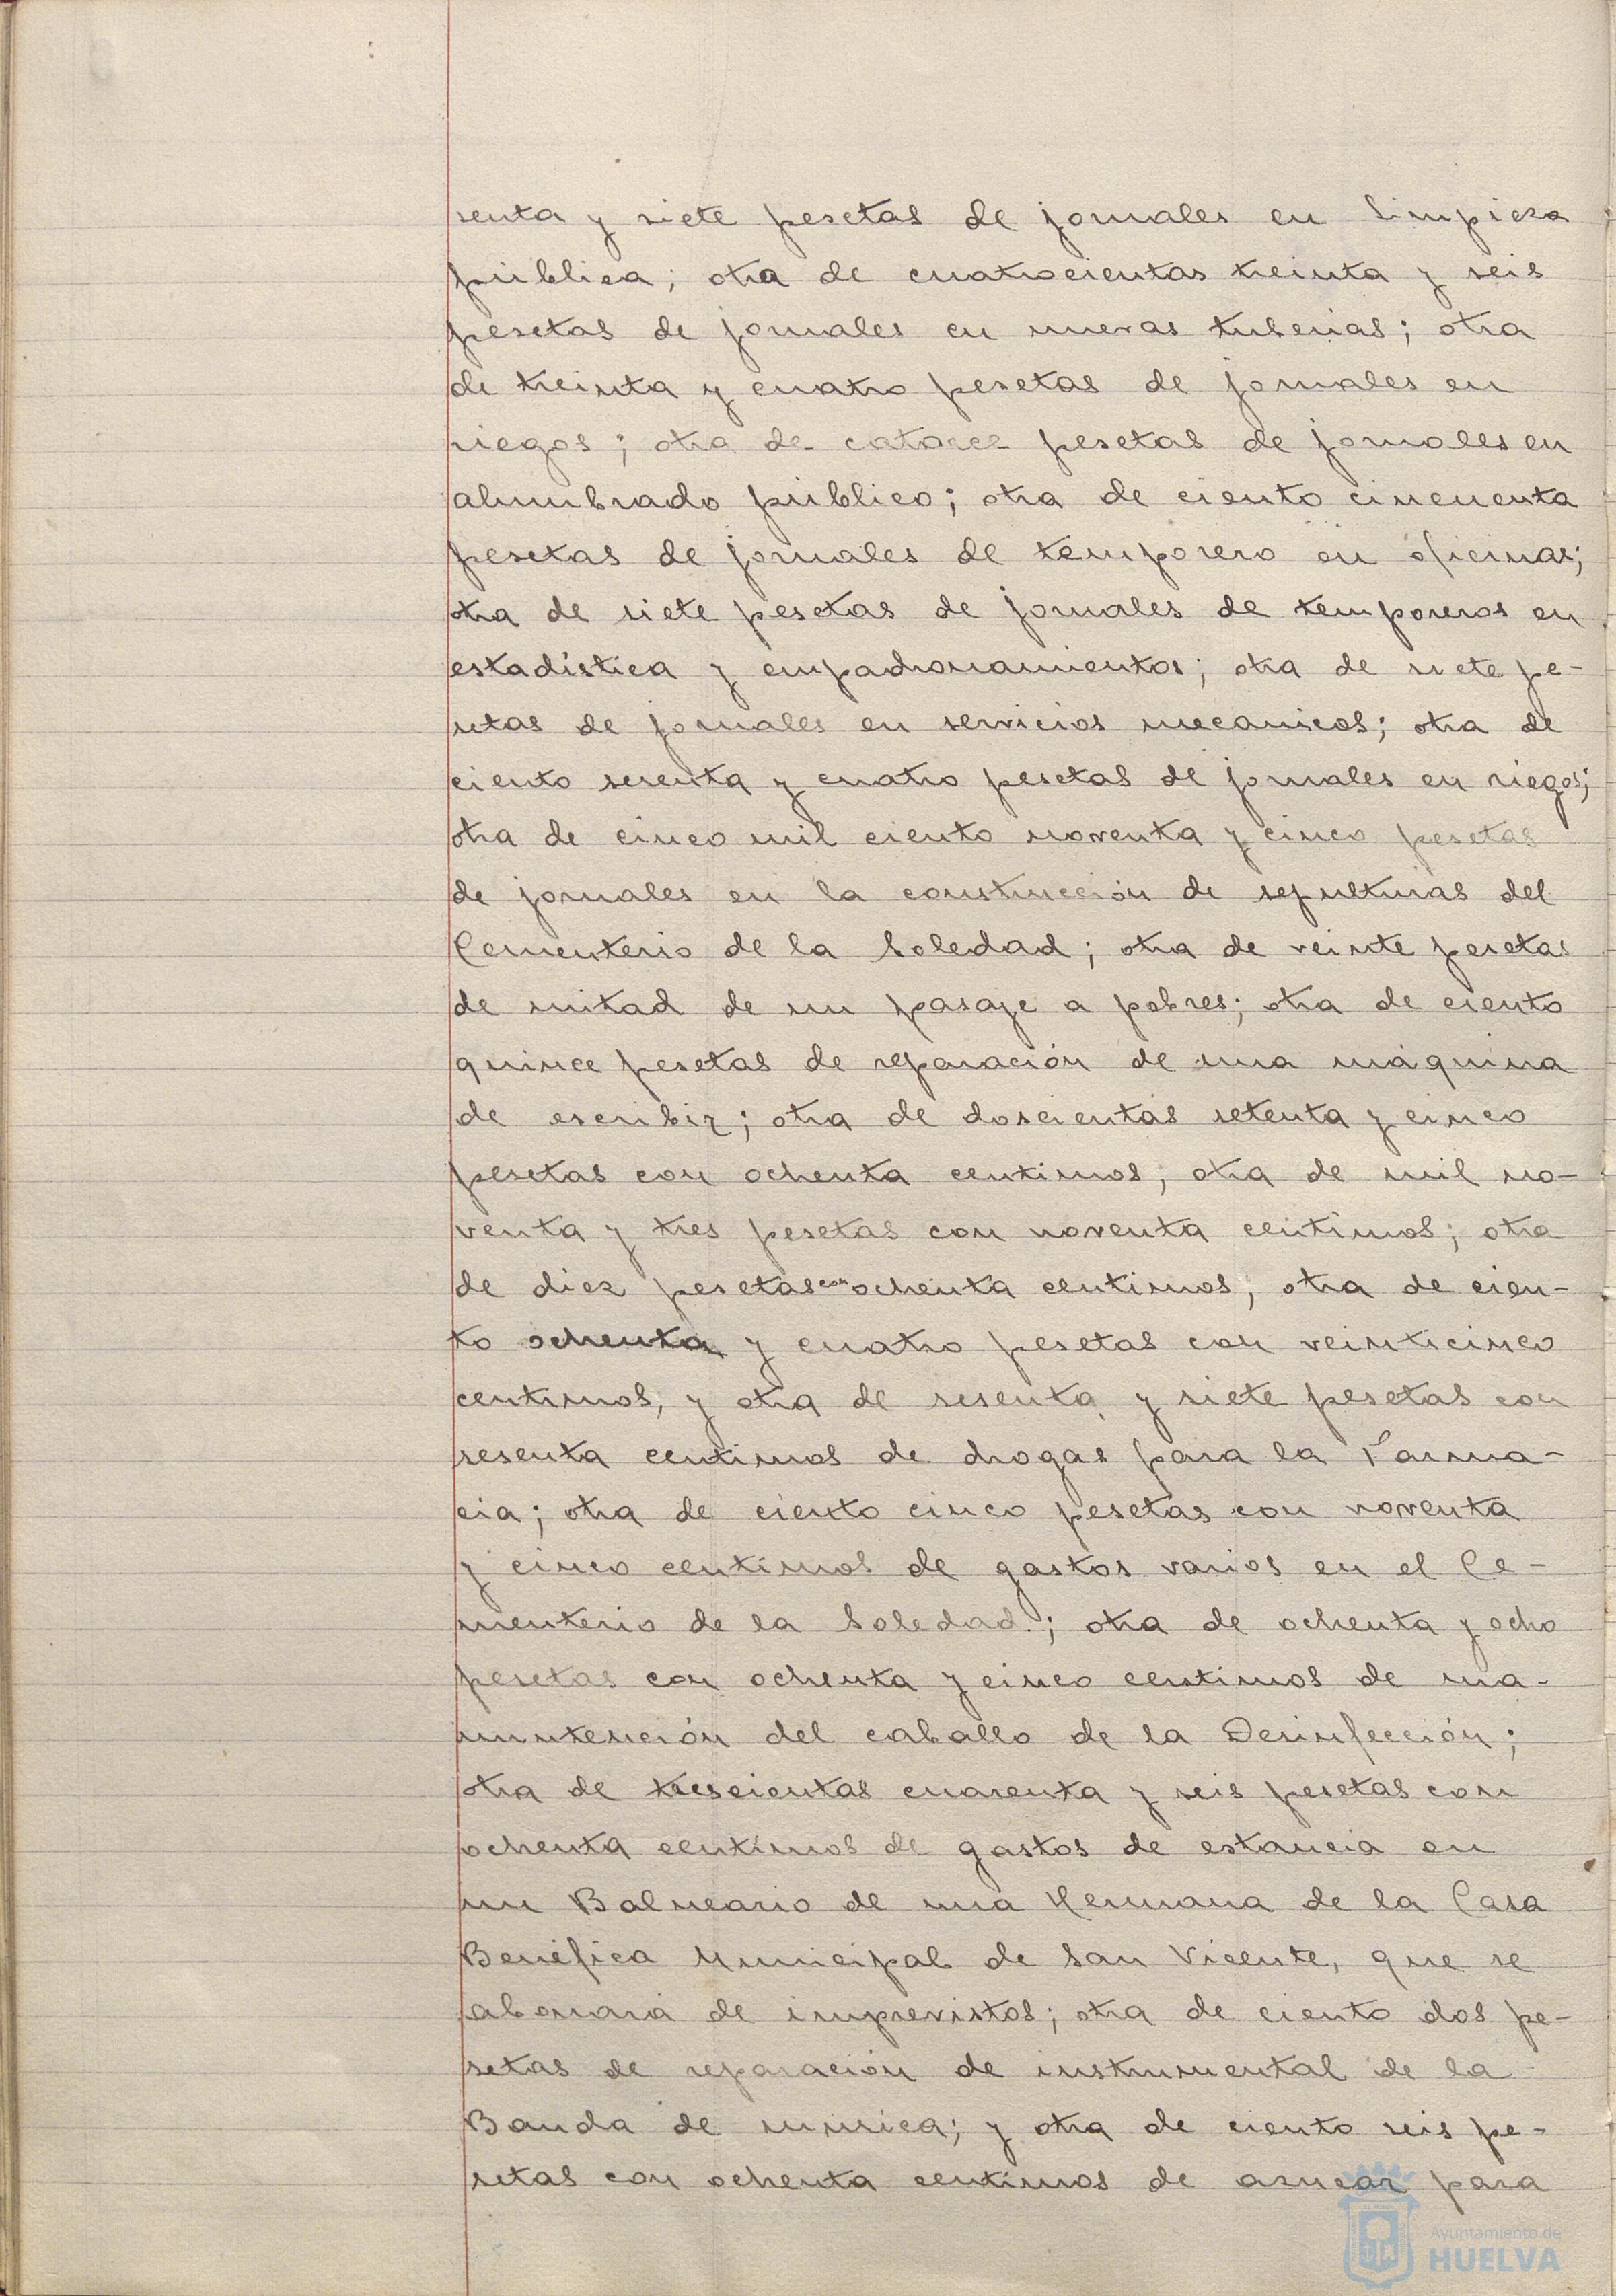 senta y siete pesetas de jornales en limpieza
pública; otra de cuatrocientas treinta y seis
pesetas de jornales en nuevas tuberías; otra
de treinta y cuatro pesetas de jornales en
riegos; otra de catorce pesetas de jornales en
alumbrado público; otra de ciento cincuenta
pesetas de jornales de temporero en oficinas;
otra de siete pesetas de jornales de temporeros en
estadística y empadronamientos; otra de siete pe-
setas de jornales en servicios mecanicos; otra de
ciento sesenta y cuatro pesetas de jornales en riegos;
otra de cinco mil ciento noventa y cinco pesetas
de jornales en la construcción de sepulturas del
Cementerio de la Soledad; otra de veinte pesetas
de mitad de un pasaje a pobres; otra de ciento
quince pesetas de reparación de una máquina
de escribir; otra de doscientas setenta y cinco
pesetas con ochenta centimos; otra de mil no-
venta y tres pesetas con noventa centimos; otra
de diez pesetas con ochenta centimos; otra de cien-
to ochenta y cuatro pesetas con veinticinco
centimos, y otra de sesenta y siete pesetas con
sesenta centimos de drogas para la Farma-
cia; otra de ciento cinco pesetas con noventa
y cinco centimos de gastos varios en el Ce-
menterio de la Soledad; otra de ochenta y ocho
pesetas con ochenta y cinco centimos de ma-
nuntención del caballo de la Desinfección;
otra de trescientas cuarenta y seis pesetas con
ochenta centimos de gastos de estancia en
un Balneario de una Hermana de la Casa
Benéfica Municipal de San Vicente, que se
abonará de imprevistos; otra de ciento dos pe-
setas de reparación de instrumental de la
Banda de música; y otra de ciento seis pe-
setas con ochenta centimos de azucar para
Ayuntamiento de
HUELVA